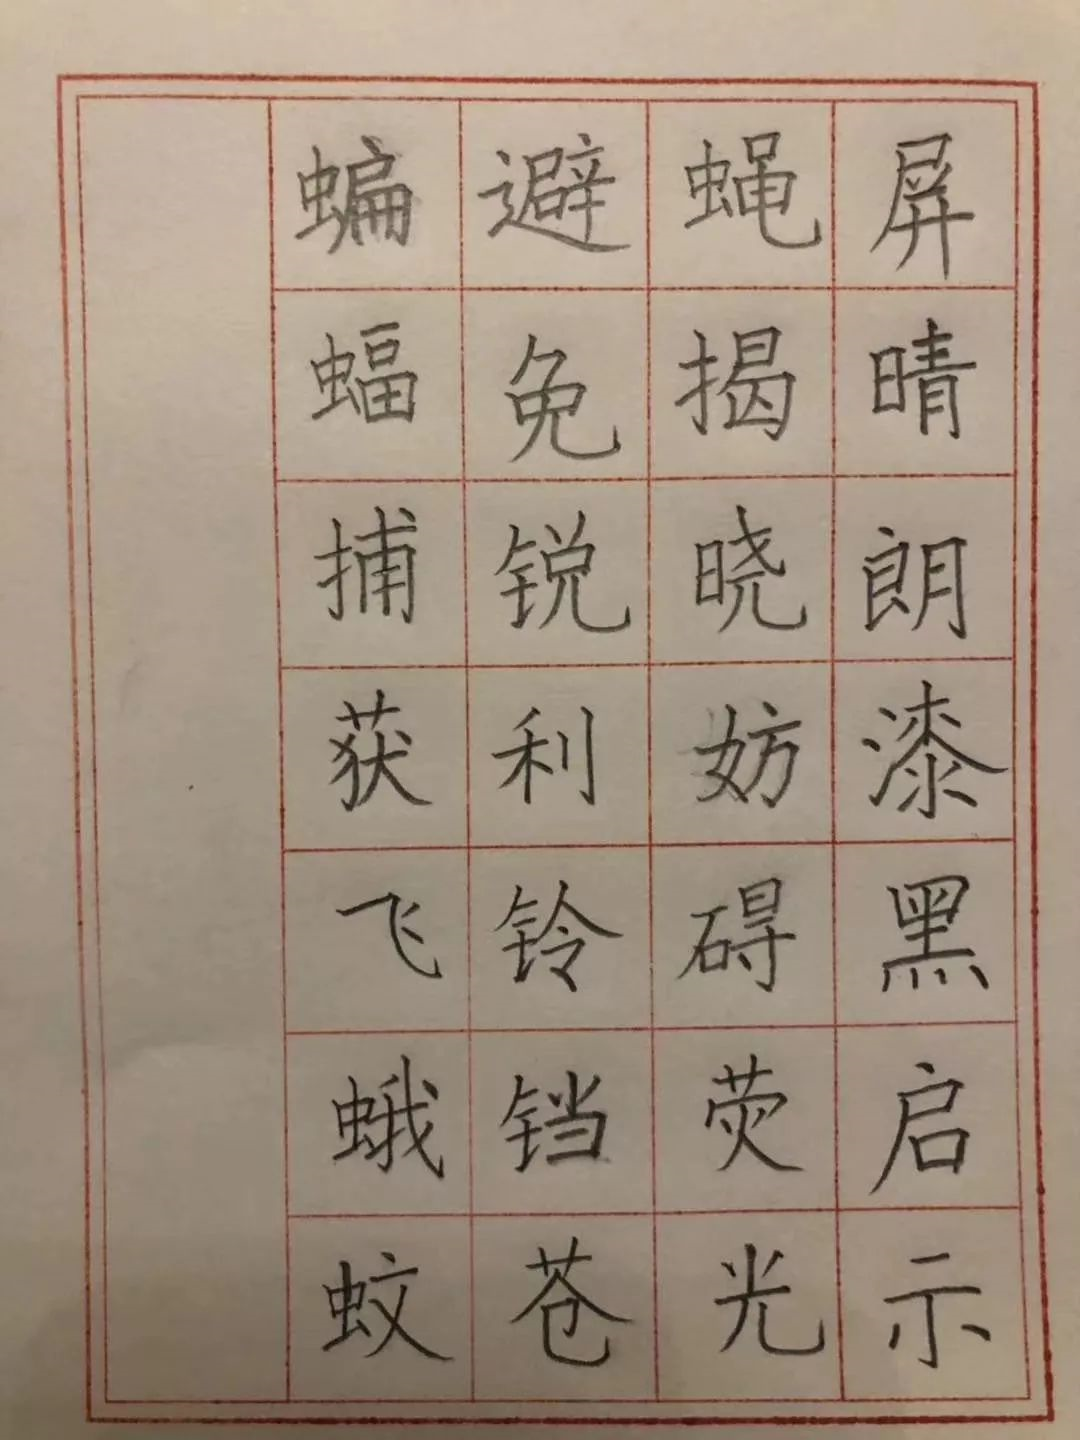 蝙蝠捕获飞蛾蚊
避免锐利铃铛苍
蝇揭晓妨碍荧光
屏晴朗漆黑启示